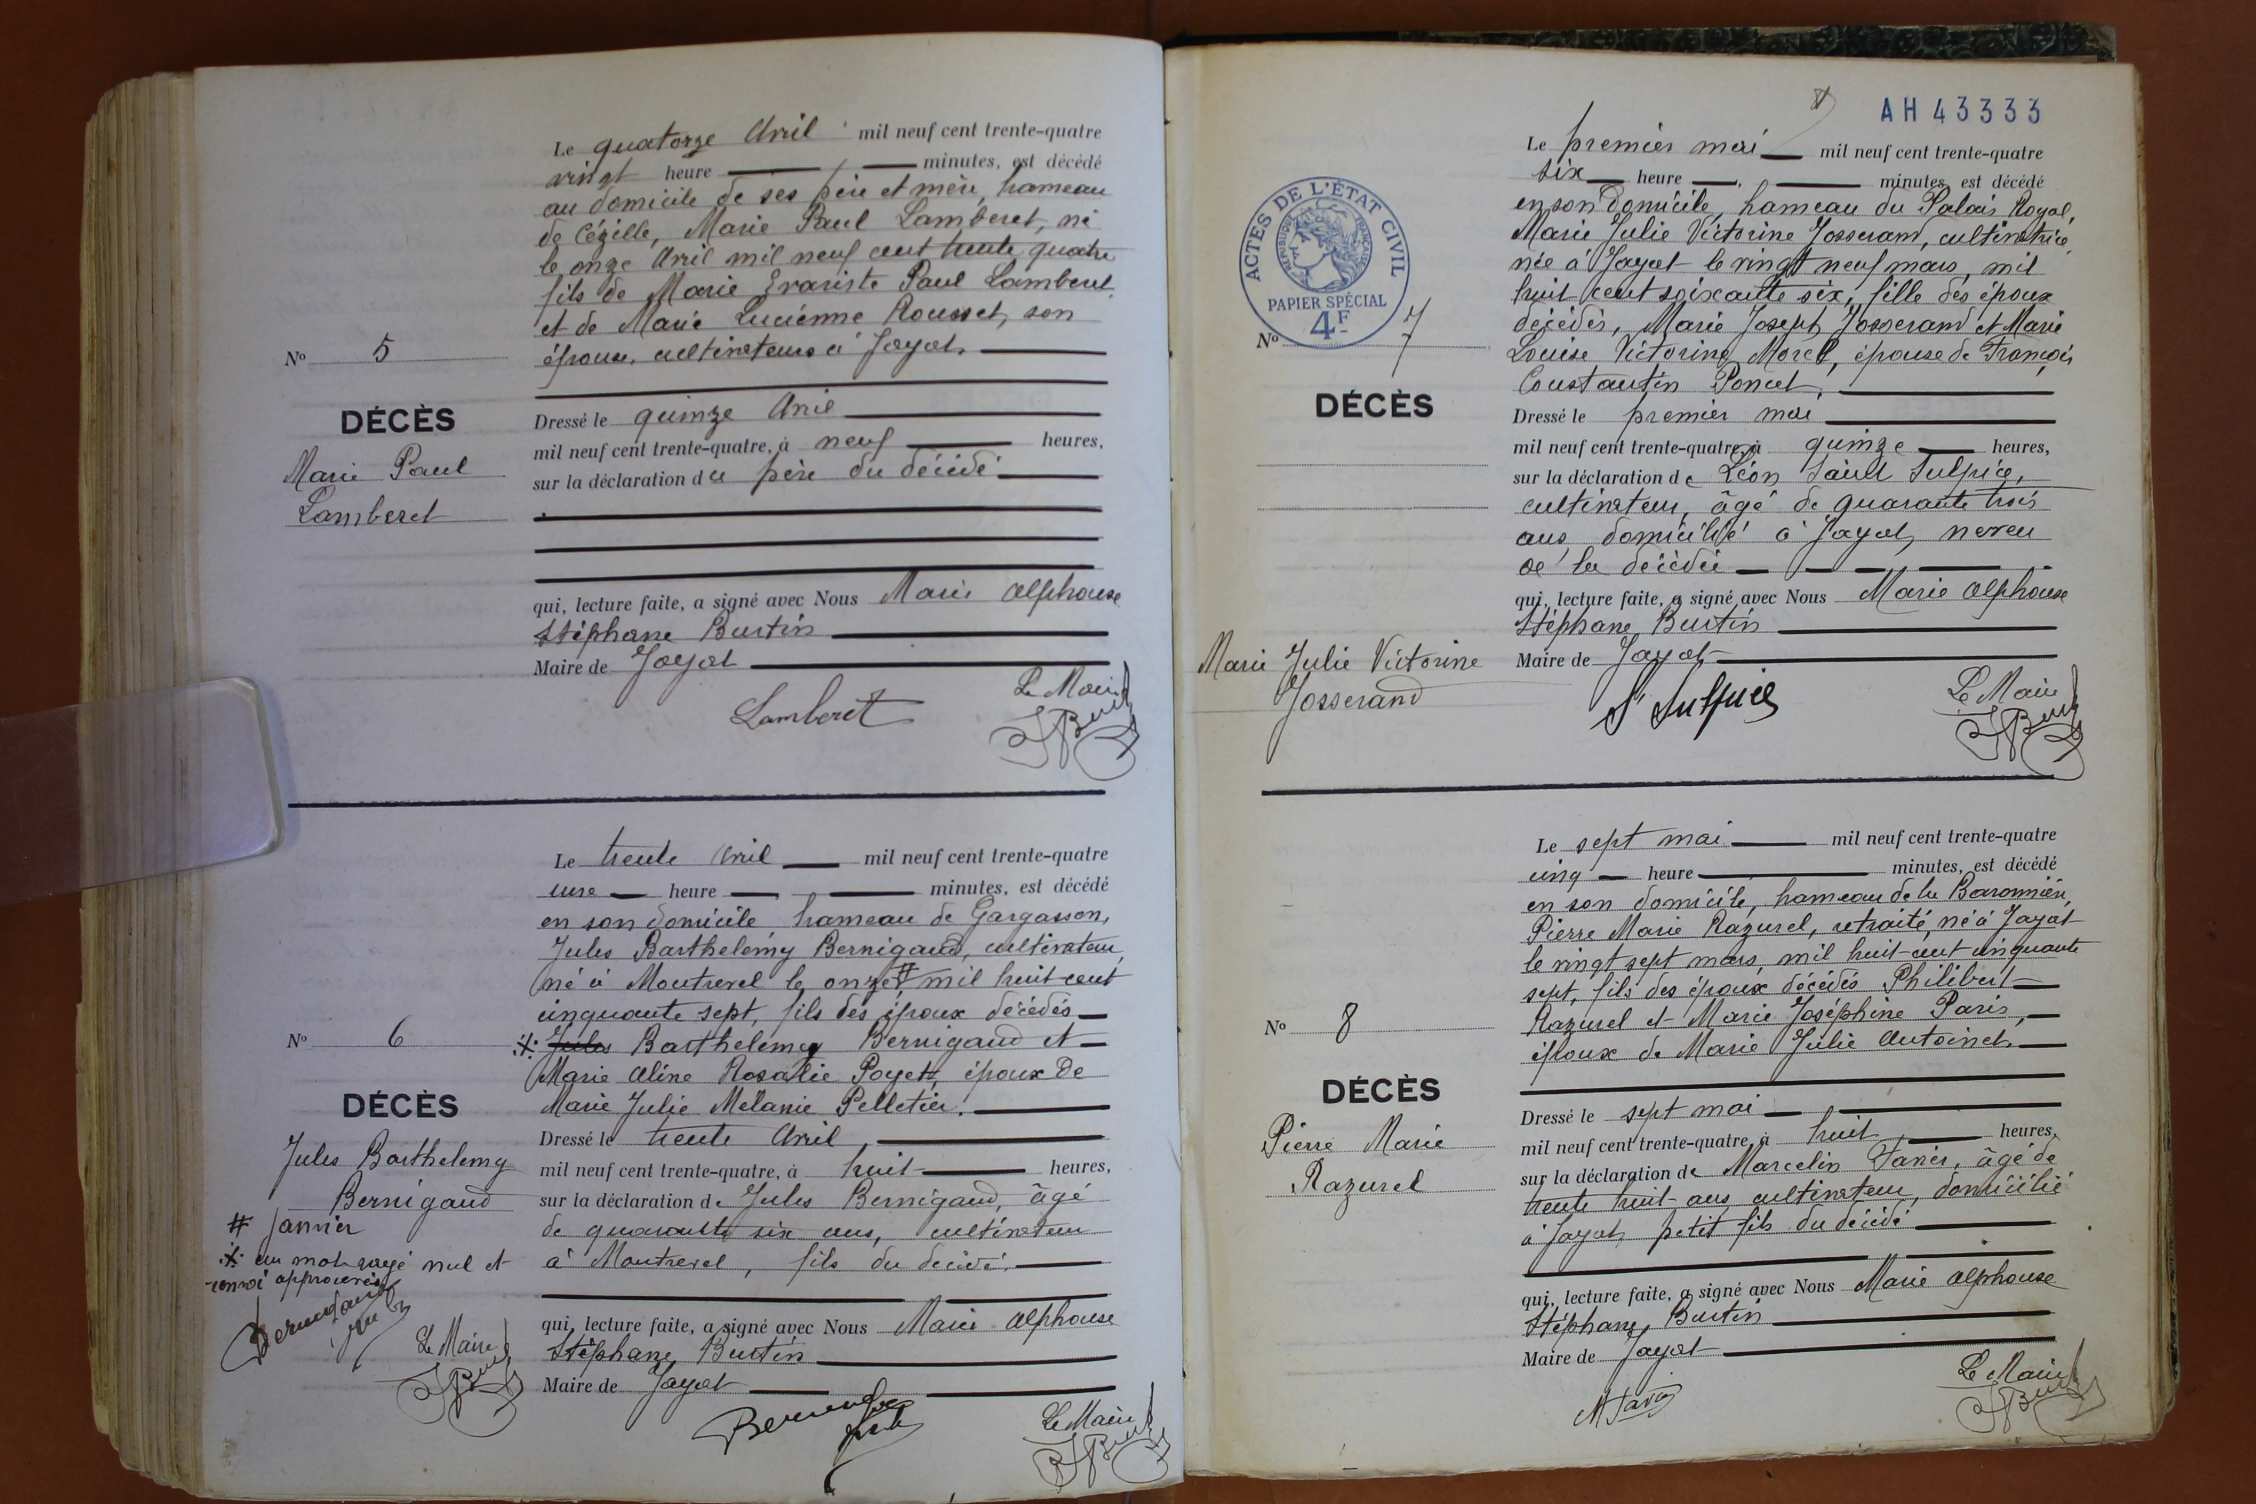 Le quatorze Avril mil neuf cent trente-quatre
vingt heure minutes, est décédé
au domicile de ses père et mère, hameau
de Cézille, Marie Paul Lamberet, né
le onze Avril mil neuf cent trente quatre
fils de Marie Evariste Paul Lamberet
et de Marie Lucienne Rousset, son
épouse, cultivateurs à Jayat.
No 5
DÉCÈS
Marie Paul
Lamberet
Dressé le quinze Avril
mil neuf cent trente-quatre, à neuf heures,
sur la déclaration du père du décédé
qui, lecture faite, a signé avec Nous Marie Alphonse
Stéphane Burtin
Maire de Jayat
Lamberet
Le Maire
Le trente Avril mil neuf cent trente-quatre
une heure minutes, est décédé
en son domicile hameau de Gargasson,
Jules Barthelemy Bernigaud, cultivateur,
né à Montrevel le onze # mil huit cent
cinquante sept, fils des époux décédés
Jules Barthelemy Bernigaud et
Marie Aline Rosalie Poyet, époux de
Marie Julie Mélanie Pelletier.
No 6
DÉCÈS
Jules Barthelemy
Bernigaud
# janvier
un mot rayé nul et
renvoi approuvés
Le Maire
Dressé le trente Avril
mil neuf cent trente-quatre, à huit heures,
sur la déclaration de Jules Bernigaud, âgé
de quarante six ans, cultivateur
à Montrevel, fils du décédé.
qui, lecture faite, a signé avec Nous Marie Alphonse
Stéphane Burtin
Maire de Jayat
Le Maire
AH 43333
Le premier mai mil neuf cent trente-quatre
six heure minutes, est décédé
en son domicile, hameau du Palais Royal,
Marie Julie Victorine Josserand, cultivatrice
née à Jayat le vingt neuf mars, mil
huit cent soixante six, fille des époux
décédés, Marie Joseph Josserand et Marie
Louise Victorine Morel, épouse de François
Constantin Poncet.
ACTES DE L'ÉTAT CIVIL
RÉPUBLIQUE FRANÇAISE
PAPIER SPÉCIAL
4F
No 7
DÉCÈS
Marie Julie Victorine
Josserand
Dressé le premier mai
mil neuf cent trente-quatre, à quinze heures,
sur la déclaration de Léon Saint Sulpice,
cultivateur, âgé de quarante trois
ans, domicilié à Jayat, neveu
de la décédée
qui, lecture faite, a signé avec Nous Marie Alphonse
Stéphane Burtin
Maire de Jayat
St Sulpice
Le Maire
Le sept mai mil neuf cent trente-quatre
cinq heure minutes, est décédé
en son domicile, hameau de la Baronnière,
Pierre Marie Razurel, retraité, né à Jayat
le vingt sept mars, mil huit cent cinquante
sept, fils des époux décédés Philibert
Razurel et Marie Joséphine Paris,
époux de Marie Julie Antoinet.
No 8
DÉCÈS
Pierre Marie
Razurel
Dressé le sept mai
mil neuf cent trente-quatre, à huit heures,
sur la déclaration de Marcelin Favier, âgé de
trente huit ans, cultivateur, domicilié
à Jayat, petit fils du décédé
qui, lecture faite, a signé avec Nous Marie Alphonse
Stéphane Burtin
Maire de Jayat
Le Maire